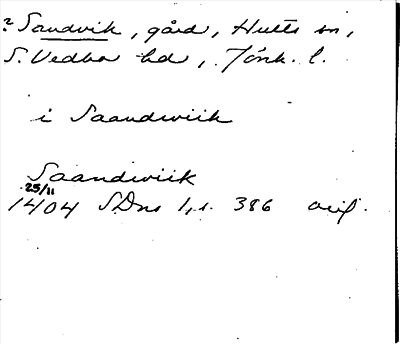 ? Sandvik, gård, Hults sn,
S. Vedbo hd, Jönk. l.
i Saandwiik
Saandwiik
25/11
1404 SDns 1, s. 386 orig.